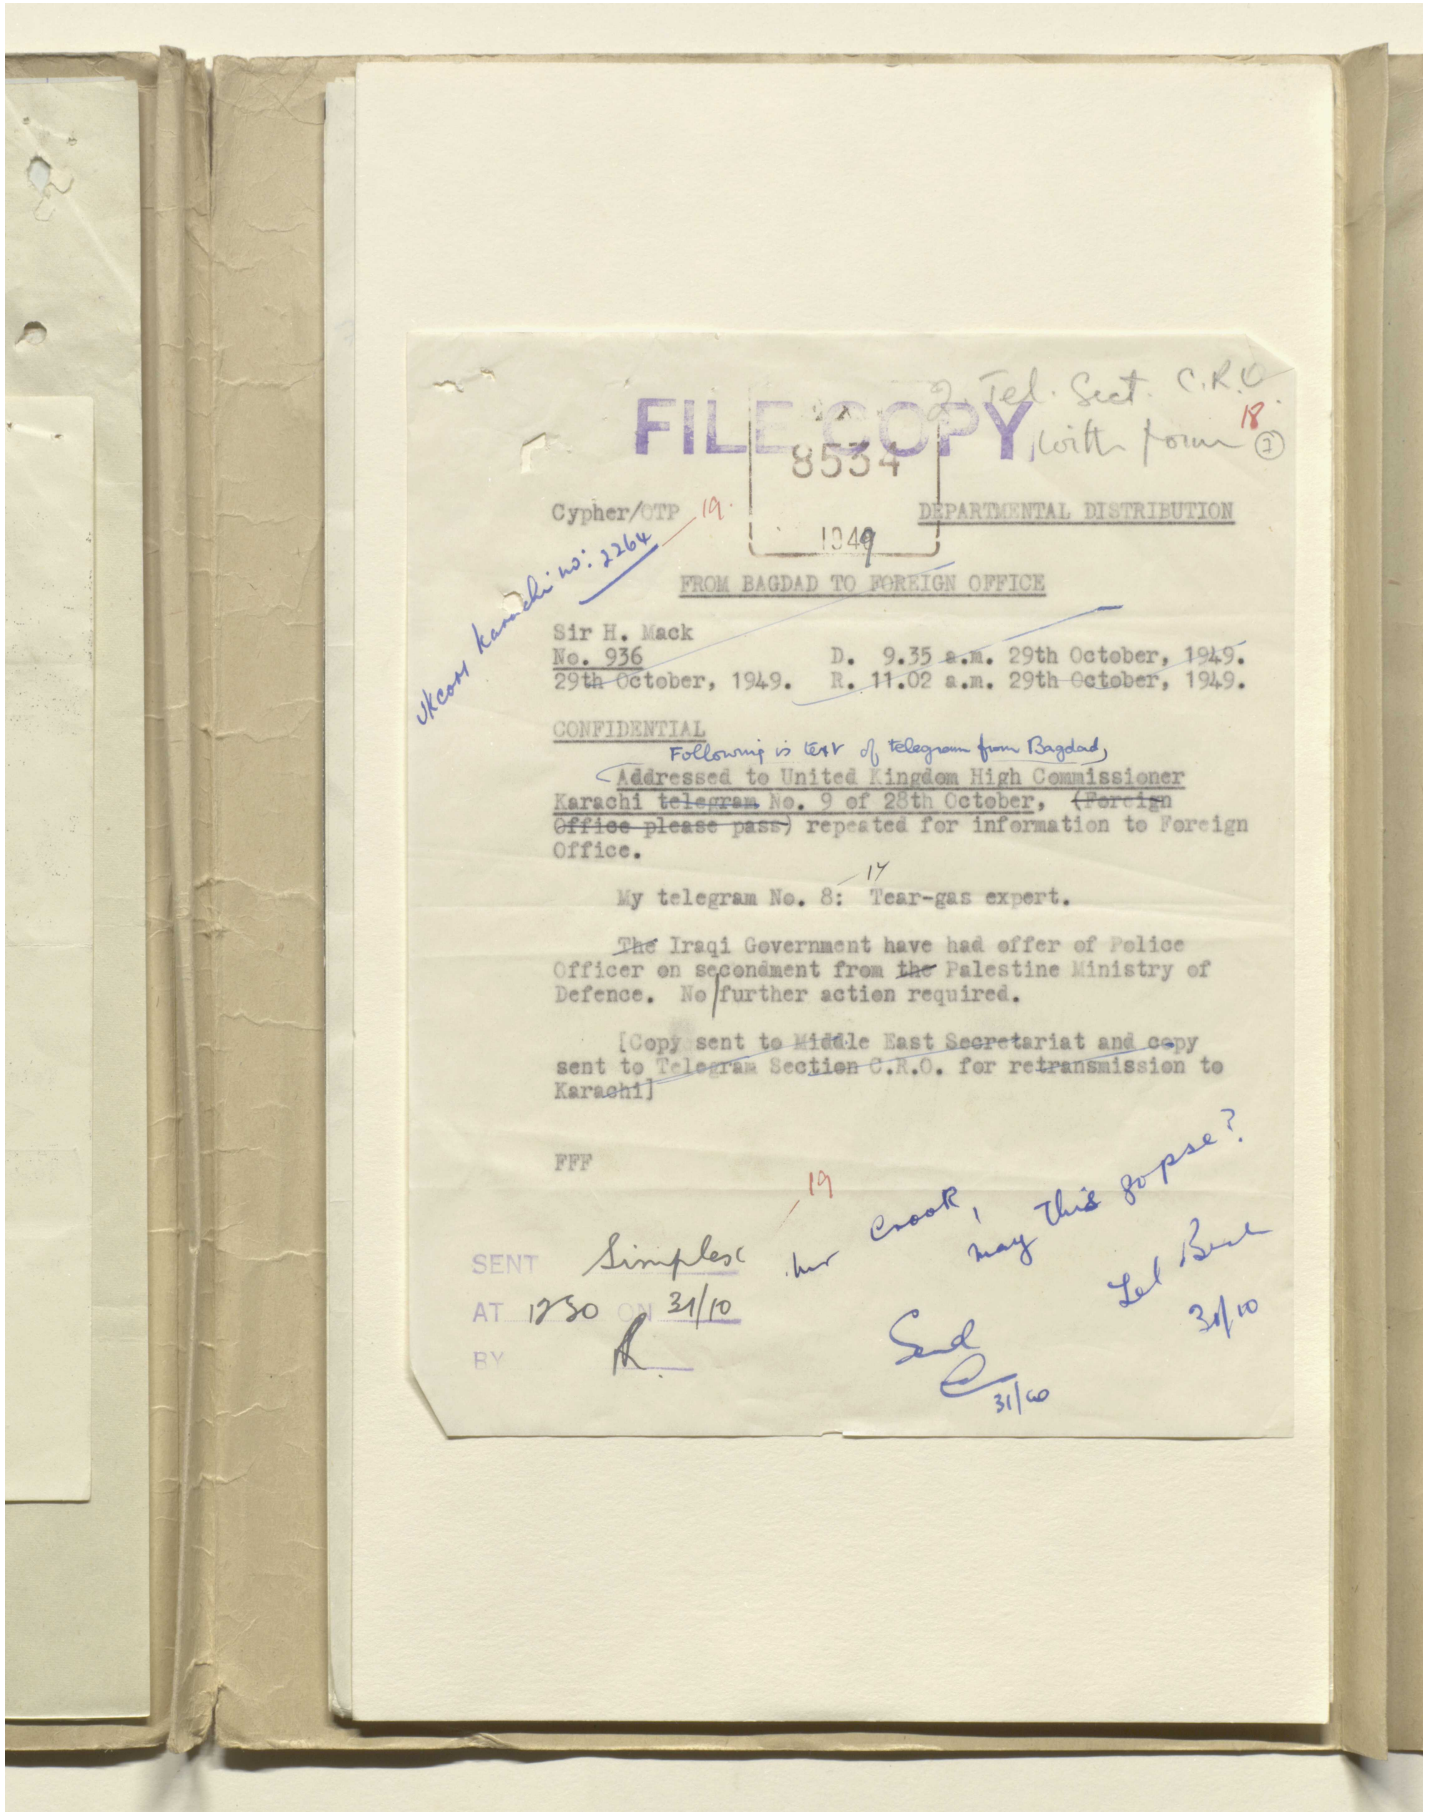 2. Tel. Sect. C.R.O.
FILE COPY
18
with form ②
8534
Cypher/OTP
19.
DEPARTMENTAL DISTRIBUTION
1949
UKCOM Karachi no: 2264
FROM BAGDAD TO FOREIGN OFFICE
Sir H. Mack
No. 936 D. 9.35 a.m. 29th October, 1949.
29th October, 1949. R. 11.02 a.m. 29th October, 1949.
CONFIDENTIAL
Following is text of telegram from Bagdad,
Addressed to United Kingdom High Commissioner
Karachi telegram No. 9 of 28th October, (Foreign
Office please pass) repeated for information to Foreign
Office.
17
My telegram No. 8: Tear-gas expert.
The Iraqi Government have had offer of Police
Officer on secondment from the Palestine Ministry of
Defence. No further action required.
[Copy sent to Middle East Secretariat and copy
sent to Telegram Section C.R.O. for retransmission to
Karachi]
FFF
19
Mr Crook,
may this go pse?
31/10
SENT Simplex
AT 1230 ON 31/10
BY
Send
31/10